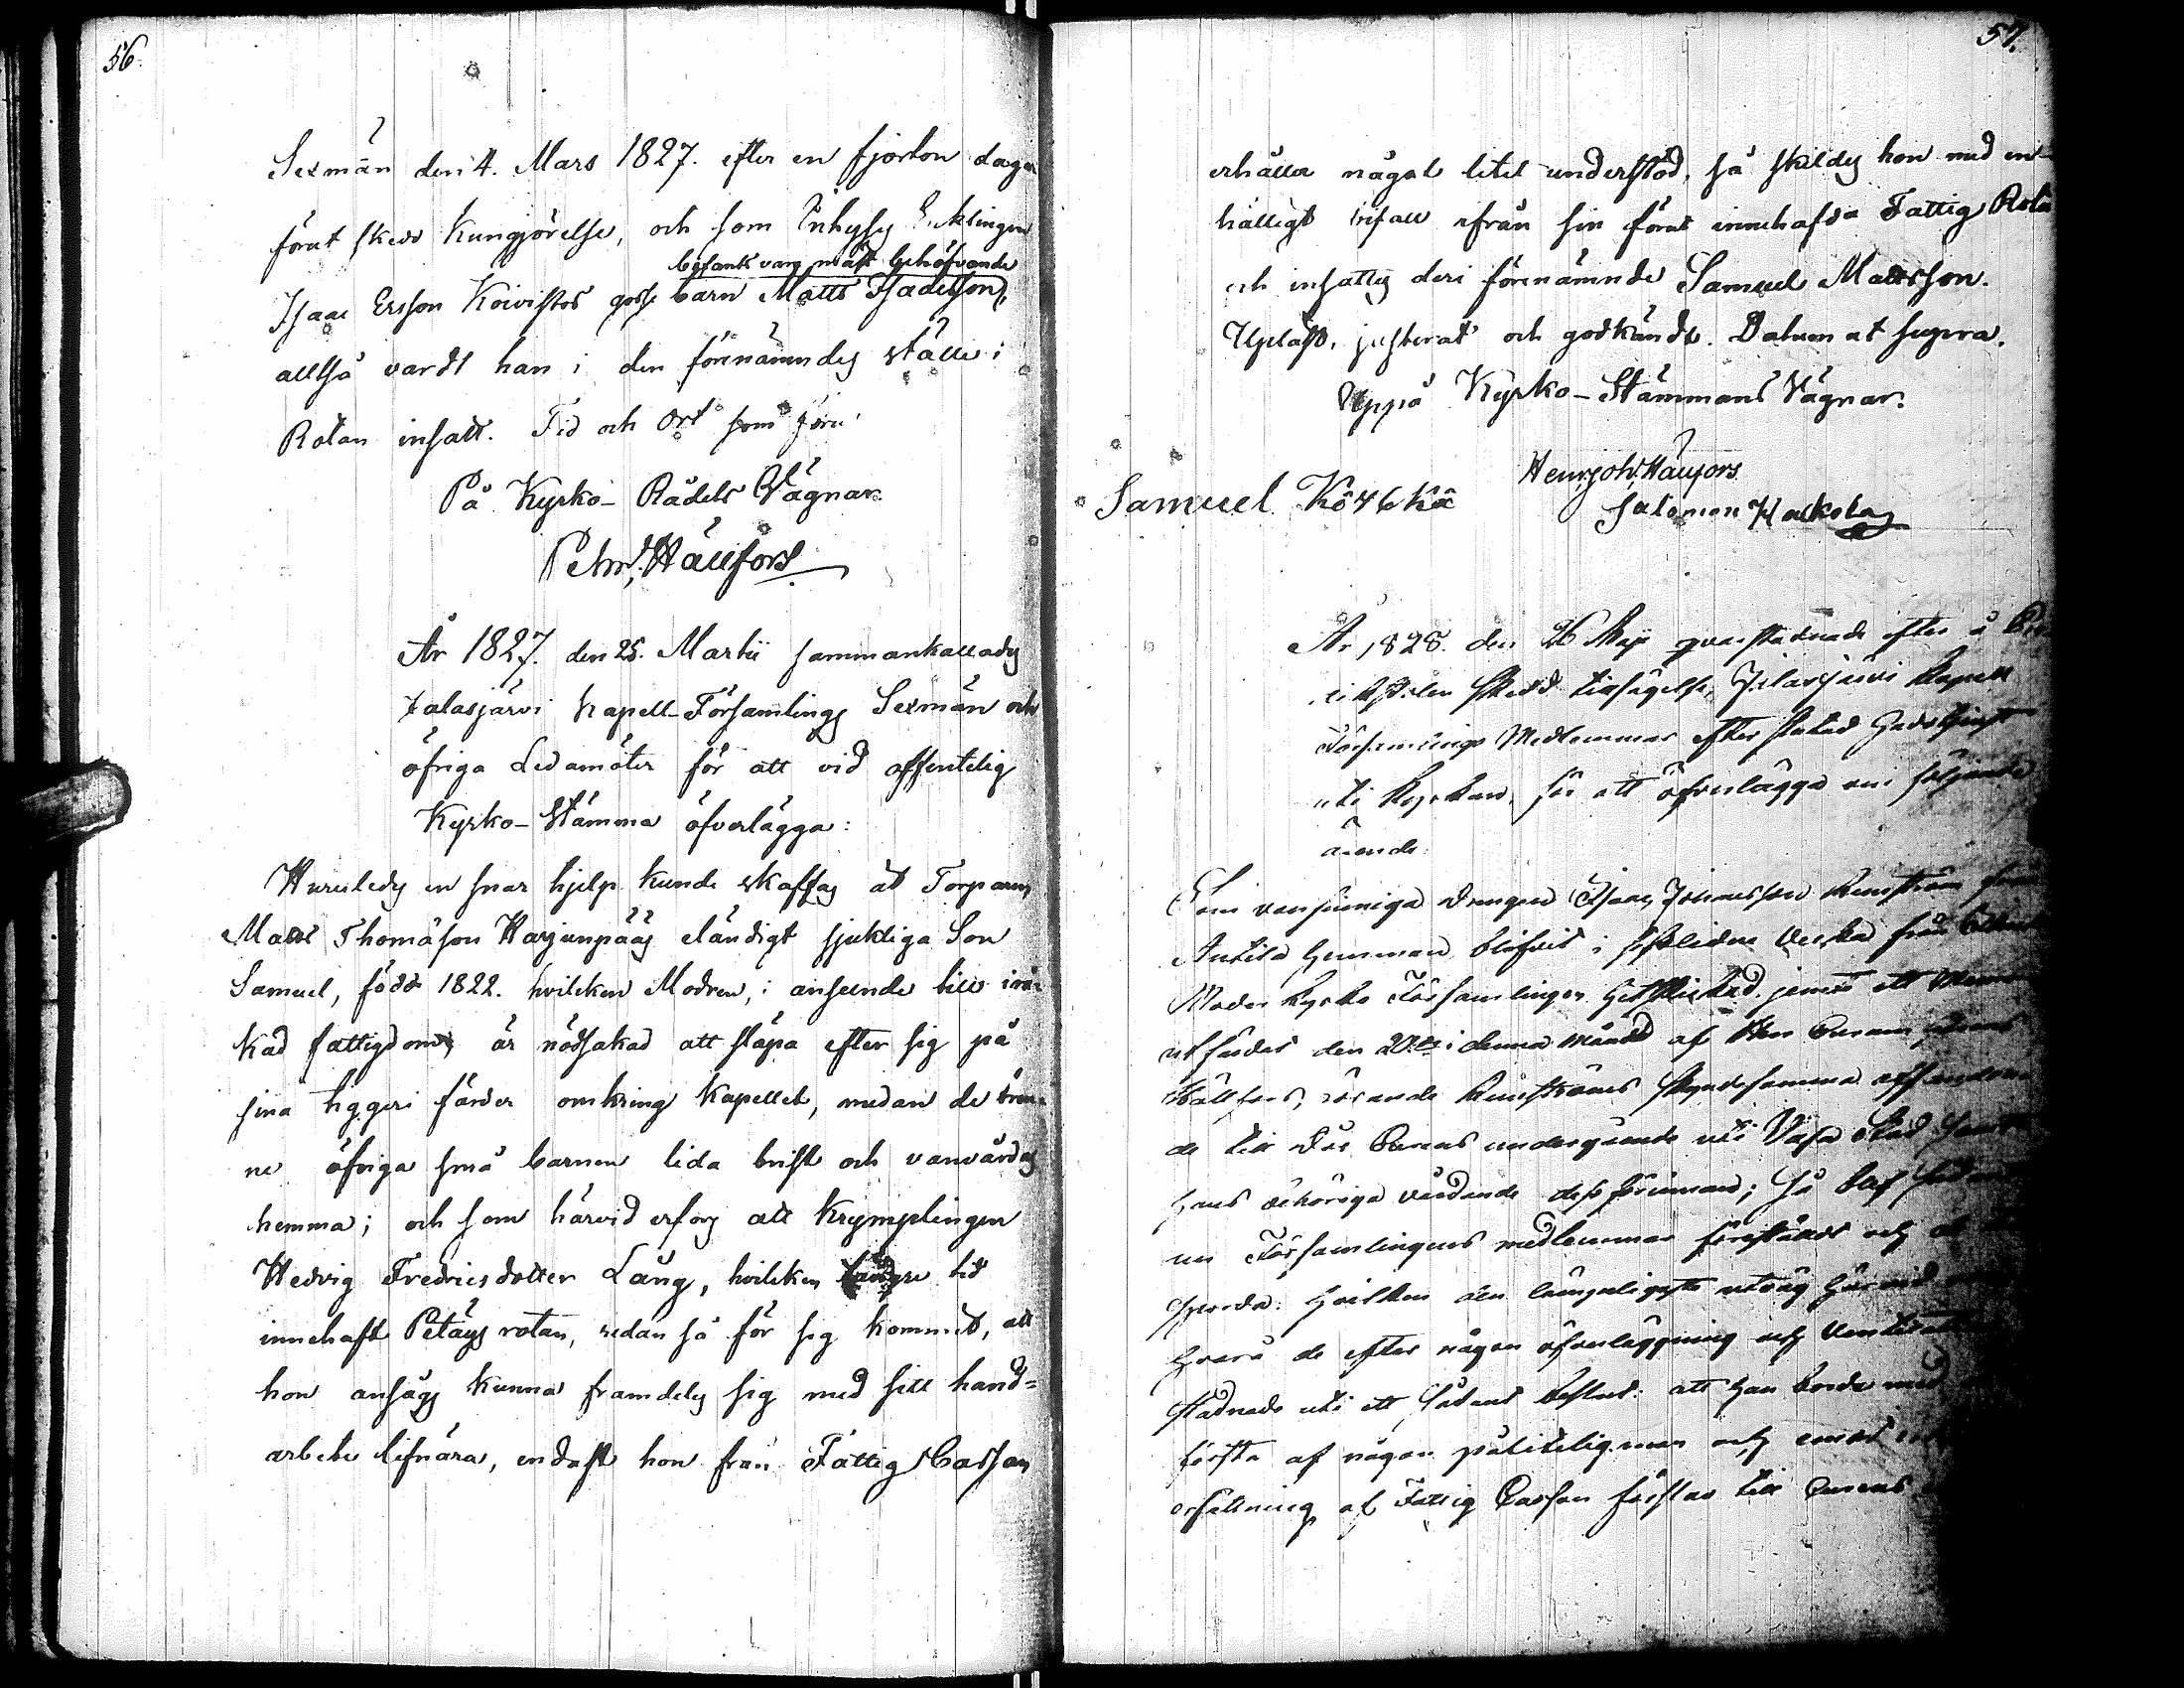 56.
Sexmän den 4. Mars 1827. efter en fjorton dagar
förut skedd Kungjörelse, och som Inhyses
befants vara mäst behöfvande
Isaac Ersson Koivistos gosse barn Matts Isacsson,
alltså vardt han i den förenämndes ställe i
Rotan insatt. Tid och Ort som förr.
På Kyrko-Rådets Vägnar.
Petr. Hällfors
År 1827. den 25. Martii sammankallades
Jalasjärvi Kapell-Församlings Sexmän och
öfriga Ledamöter för att vid offentelig
Kyrko-Stämma öfverlägga:
Huruledes en snar hjelp kunde skaffas åt Torparens
Matts Thomäson Harjunpääs eländigt sjukliga Son
Samuel, född 1822. hvilken Modren, i anseende till
kad fattigdom, är nödsakad att släpa efter sig på
sina tiggeri färder omkring Kapellet, medan de
ne öfriga små barnen lida brist och vanvårdas
hemma; och som härvid erfors att Krymplingen
Hedvig Fredricsdotter Lång, hvilken längre tid
innehaft Petäys rotan, redan så för sig kommit, att
hon ansågs kunna framdeles sig med sitt hand=
arbete lifnära, endast hon från Fattig Cassan
57.
erhåller något litet understöd, så skildes hon med en-
hälligt bifall ifrån sin förut innehafda Fattig Rota
och insattes deri förenämnde Samuel Mattsson.
Upläst, justerat och godkändt. Datum ut supra.
Uppå Kyrko-Stämmans Vägnar.
Henr. Joh. Hällfors
Samuel Körkkä
Salomon
År 1828. den 26 Maji qvarstadnade efter å
skedd tillsägelse, Jalasjärvi Kapell
Församlings Medlemmar efter slutad Gudstjenst
uti Kyrkan, för att öfverlägga om följande
ärende.
Som vansinniga drengen Isaac Johansson
Anttila Hemman blifvit i sistledne Vecka från
Moder Kyrko Församlingen hitskickad jemte ett
utfärdat den 20:de i denna Månad af Herr
Hällfors, rörande skyndesamma
de till dess Curens undergående uti Vasa Stad
hans behöriga vårdande dess förinnan; Så blef
nu Församlingens medlemmar förestäldt och
sporda: hvilken den lämpeligaste utväg härvid
hvarå de efter någon öfverläggning och
stadnade uti ett sådant beslut: att han borde med
första af någon pålitelig man och emot
ersättning af Fattig Cassan förslas till Curens